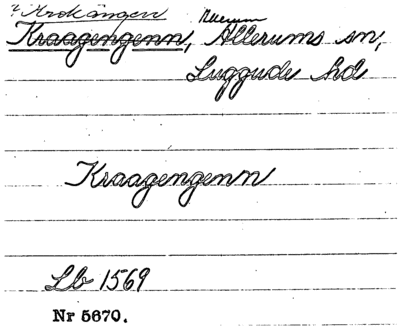 ? Krokängen Allerum
Kraagengenn, Allerums sn,
Luggude hd
Kraagengenn
Lb 1569
Nr 5670.